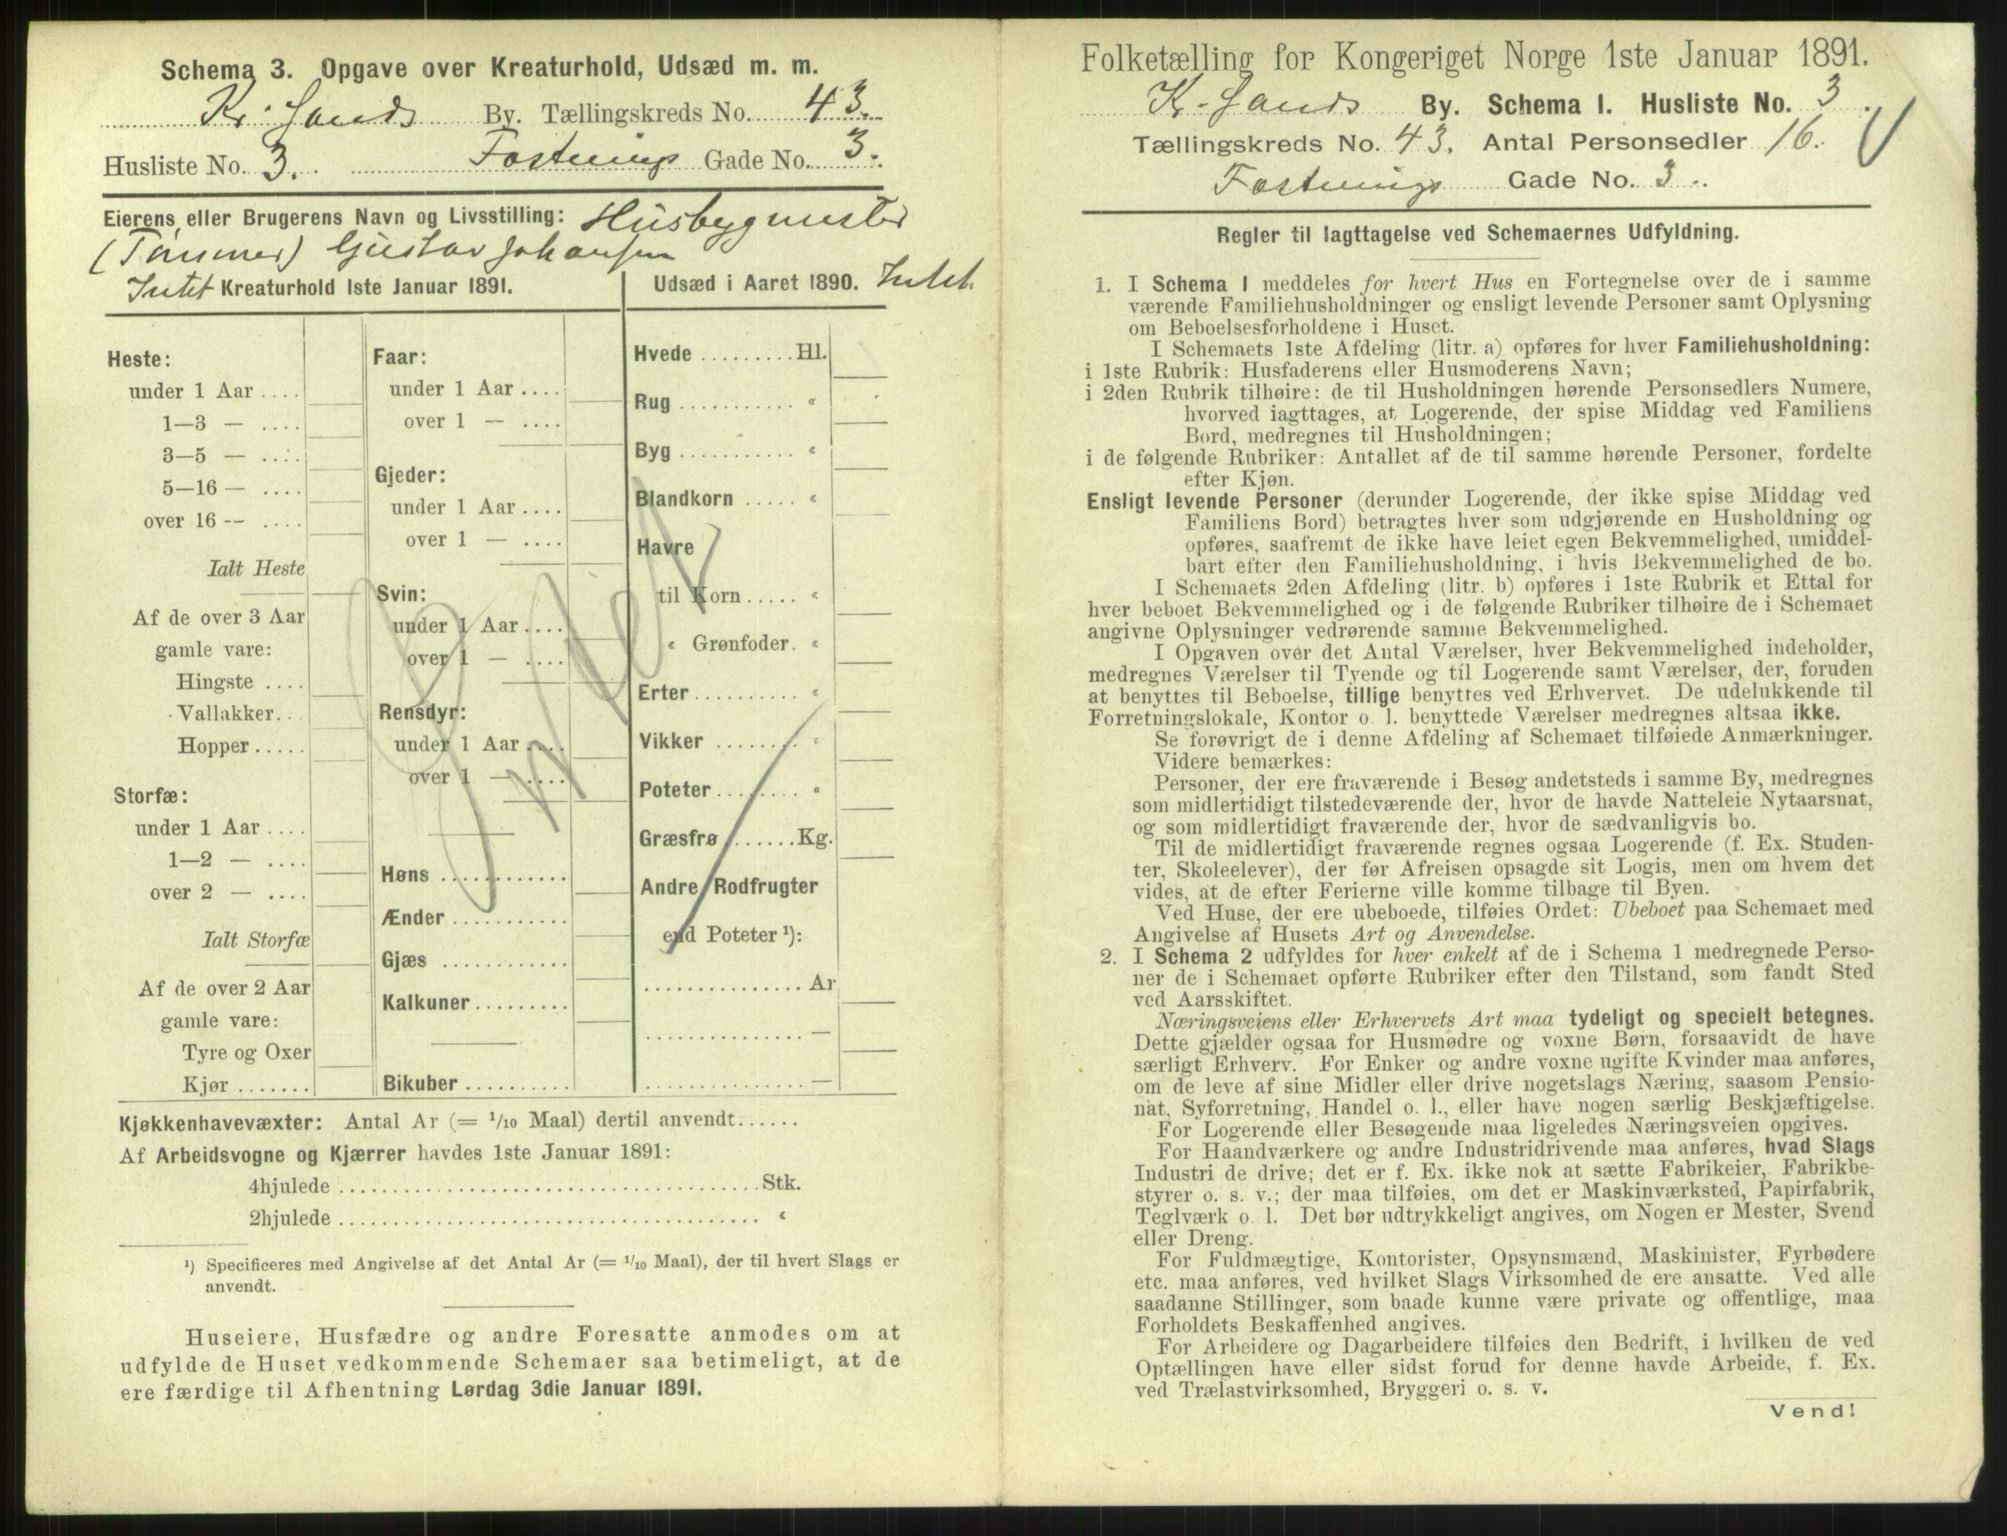 Schema 3. Opgave over Kreaturhold, Udsæd m. m.
Kr. Sands By. Tællingskreds No. 43.
Husliste No. 3. Fæstnings Gade No. 3.
Eierens eller Brugerens Navn og Livsstilling: Husbygmester
(Tømmer) Gustav Johansen
Intet Kreaturhold 1ste Januar 1891.
Heste:
under 1 Aar ....
1—3 — ....
3—5 — ....
5—16 — ....
over 16 -- ....
Ialt Heste
Af de over 3 Aar
gamle vare:
Hingste ....
Vallakker...
Hopper.....
Storfæ:
under 1 Aar ....
1—2 — ....
over 2 — ....
Ialt Storfæ
Af de over 2 Aar
gamle vare:
Tyre og Oxer
Kjør .......
Faar:
under 1 Aar ....
over 1 — ....
Gjeder:
under 1 Aar ....
over 1 — ....
Svin:
under 1 Aar ....
over 1 — ....
Rensdyr:
under 1 Aar ....
over 1 — ....
Høns ............
Ænder ...........
Gjæs ............
Kalkuner.........
Bikuber ..........
Udsæd i Aaret 1890. Intet
Hvede .........Hl.
Rug ........... «
Byg ........... «
Blandkorn ..... «
Havre
til Korn..... «
« Grønfoder. «
Erter.......... «
Vikker ........ «
Poteter........ «
Græsfrø .......Kg.
Andre Rodfrugter
end Poteter ¹):
...............Ar
............... —
............... —
Intet
Kjøkkenhavevæxter: Antal Ar (= 1/10 Maal) dertil anvendt......
Af Arbeidsvogne og Kjærrer havdes 1ste Januar 1891:
4hjulede ......................................Stk.
2hjulede ...................................... «
¹) Specificeres med Angivelse af det Antal Ar (= 1/10 Maal), der til hvert Slags er
anvendt.
Huseiere, Husfædre og andre Foresatte anmodes om at
udfylde de Huset vedkommende Schemaer saa betimeligt, at de
ere færdige til Afhentning Lørdag 3die Januar 1891.
Folketælling for Kongeriget Norge 1ste Januar 1891.
Kr. Sands By. Schema I. Husliste No. 3.
Tællingskreds No. 43. Antal Personsedler 16.
Fæstnings Gade No. 3.
Regler til Iagttagelse ved Schemaernes Udfyldning.
1. I Schema I meddeles for hvert Hus en Fortegnelse over de i samme
værende Familiehusholdninger og ensligt levende Personer samt Oplysning
om Beboelsesforholdene i Huset.
I Schemaets 1ste Afdeling (litr. a) opføres for hver Familiehusholdning:
i 1ste Rubrik: Husfaderens eller Husmoderens Navn;
i 2den Rubrik tilhøire: de til Husholdningen hørende Personsedlers Numere,
hvorved iagttages, at Logerende, der spise Middag ved Familiens
Bord, medregnes til Husholdningen;
i de følgende Rubriker: Antallet af de til samme hørende Personer, fordelte
efter Kjøn.
Ensligt levende Personer (derunder Logerende, der ikke spise Middag ved
Familiens Bord) betragtes hver som udgjørende en Husholdning og
opføres, saafremt de ikke have leiet egen Bekvemmelighed, umiddel-
bart efter den Familiehusholdning, i hvis Bekvemmelighed de bo.
I Schemaets 2den Afdeling (litr. b) opføres i 1ste Rubrik et Ettal for
hver beboet Bekvemmelighed og i de følgende Rubriker tilhøire de i Schemaet
angivne Oplysninger vedrørende samme Bekvemmelighed.
I Opgaven over det Antal Værelser, hver Bekvemmelighed indeholder,
medregnes Værelser til Tyende og til Logerende samt Værelser, der, foruden
at benyttes til Beboelse, tillige benyttes ved Erhvervet. De udelukkende til
Forretningslokale, Kontor o. l. benyttede Værelser medregnes altsaa ikke.
Se forøvrigt de i denne Afdeling af Schemaet tilføiede Anmærkninger.
Videre bemærkes:
Personer, der ere fraværende i Besøg andetsteds i samme By, medregnes
som midlertidigt tilstedeværende der, hvor de havde Natteleie Nytaarsnat,
og som midlertidigt fraværende der, hvor de sædvanligvis bo.
Til de midlertidigt fraværende regnes ogsaa Logerende (f. Ex. Studen-
ter, Skoleelever), der før Afreisen opsagde sit Logis, men om hvem det
vides, at de efter Ferierne ville komme tilbage til Byen.
Ved Huse, der ere ubeboede, tilføies Ordet: Ubeboet paa Schemaet med
Angivelse af Husets Art og Anvendelse.
2. I Schema 2 udfyldes for hver enkelt af de i Schema 1 medregnede Perso-
ner de i Schemaet opførte Rubriker efter den Tilstand, som fandt Sted
ved Aarsskiftet.
Næringsveiens eller Erhvervets Art maa tydeligt og specielt betegnes.
Dette gjælder ogsaa for Husmødre og voxne Børn, forsaavidt de have
særligt Erhverv. For Enker og andre voxne ugifte Kvinder maa anføres,
om de leve af sine Midler eller drive nogetslags Næring, saasom Pensio-
nat, Syforretning, Handel o. l., eller have nogen særlig Beskjæftigelse.
For Logerende eller Besøgende maa ligeledes Næringsveien opgives.
For Haandværkere og andre Industridrivende maa anføres, hvad Slags
Industri de drive; det er f. Ex. ikke nok at sætte Fabrikeier, Fabrikbe-
styrer o. s. v.; der maa tilføies, om det er Maskinværksted, Papirfabrik,
Teglværk o. l. Det bør udtrykkeligt angives, om Nogen er Mester, Svend
eller Dreng.
For Fuldmægtige, Kontorister, Opsynsmænd, Maskinister, Fyrbødere
etc. maa anføres, ved hvilket Slags Virksomhed de ere ansatte. Ved alle
saadanne Stillinger, som baade kunne være private og offentlige, maa
Forholdets Beskaffenhed angives.
For Arbeidere og Dagarbeidere tilføies den Bedrift, i hvilken de ved
Optællingen have eller sidst forud for denne havde Arbeide, f. Ex.
ved Trælastvirksomhed, Bryggeri o. s. v.
Vend!